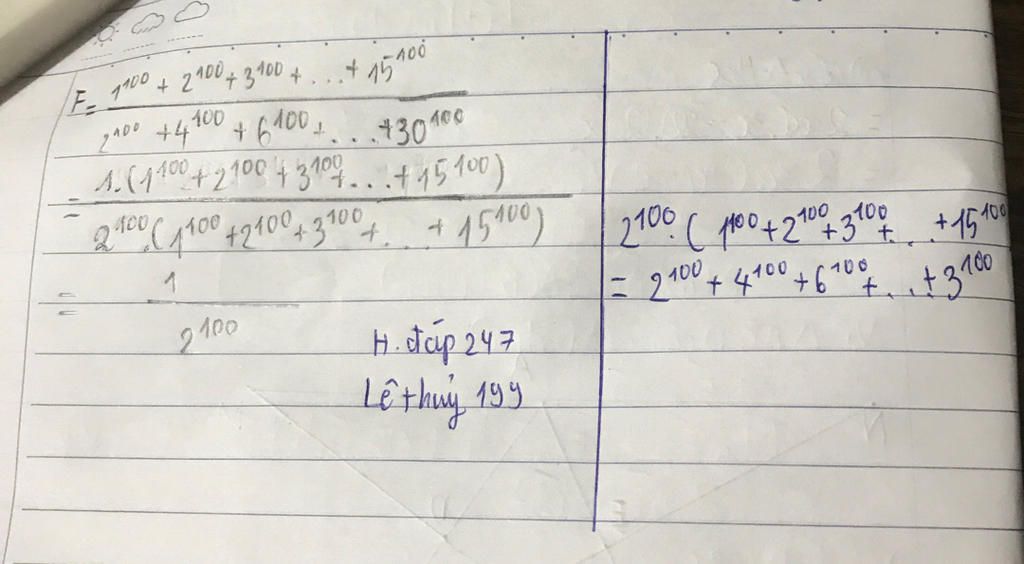 F = 1¹⁰⁰ + 2¹⁰⁰ + 3¹⁰⁰ + ... + 15¹⁰⁰
2¹⁰⁰ + 4¹⁰⁰ + 6¹⁰⁰ + ... + 30¹⁰⁰
= 1.(1¹⁰⁰ + 2¹⁰⁰ + 3¹⁰⁰ + ... + 15¹⁰⁰)
2¹⁰⁰.(1¹⁰⁰ + 2¹⁰⁰ + 3¹⁰⁰ + ... + 15¹⁰⁰)
= 1
2¹⁰⁰
H. đáp 247
Lê thuỷ 199
2¹⁰⁰.(1¹⁰⁰ + 2¹⁰⁰ + 3¹⁰⁰ + ... + 15¹⁰⁰
= 2¹⁰⁰ + 4¹⁰⁰ + 6¹⁰⁰ + ... + 3¹⁰⁰